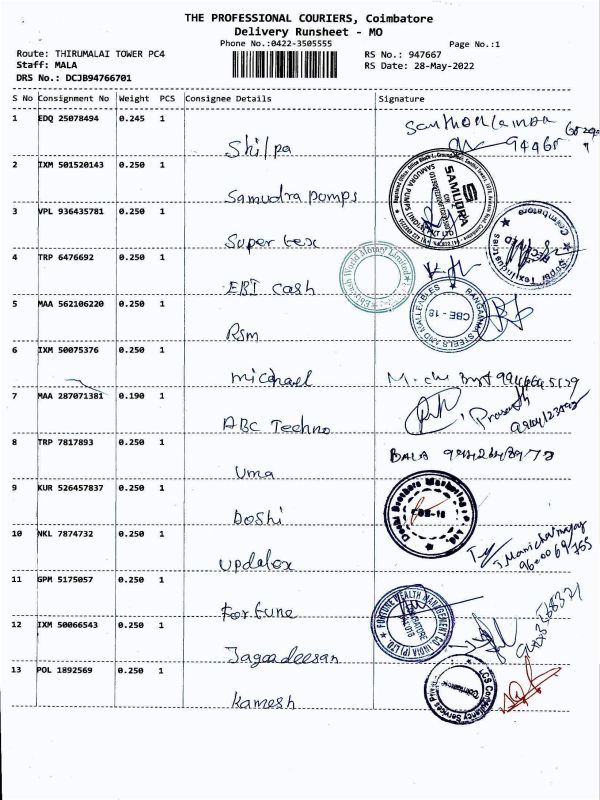 THE PROFESSIONAL COURIERS, Coimbatore
Delivery Runsheet - MO
Phone No.:0422-3505555
Page No.:1
Route: THIRUMALAI TOWER PC4
RS No.: 947667
Staff: MALA
RS Date: 28-May-2022
DRS No.: DCJB94766701
S No Consignment No Weight PCS Consignee Details Signature
1 EDQ 25078494 0.245 1
Shilpa
2 IXM 501520143 0.250 1
Samudra pumps
SAMUDRA
3 VPL 936435781 0.250 1
Super tex
Super Textindustries
Coimbatore
4 TRP 6476692 0.250 1
EBI cash
Ebixcash World Money Limited
5 MAA 562106220 0.250 1
Rsm
RANGAMMA STEELS AND MALLEABLES
CBE - 18
6 IXM 50075376 0.250 1
micchael
7 MAA 287071381 0.190 1
ABC Techno
Prasath
8 TRP 7817893 0.250 1
Uma
BALA
9 KUR 526457837 0.250 1
Doshi
CBE-18
10 NKL 7874732 0.250 1
updalox
11 GPM 5175057 0.250 1
Fortune
FORTUNE WEALTH MANAGEMENT CO. INDIA (P) LTD.
12 IXM 50066543 0.250 1
Jagaadeesan
13 POL 1892569 0.250 1
Kamesh
Consultancy Services